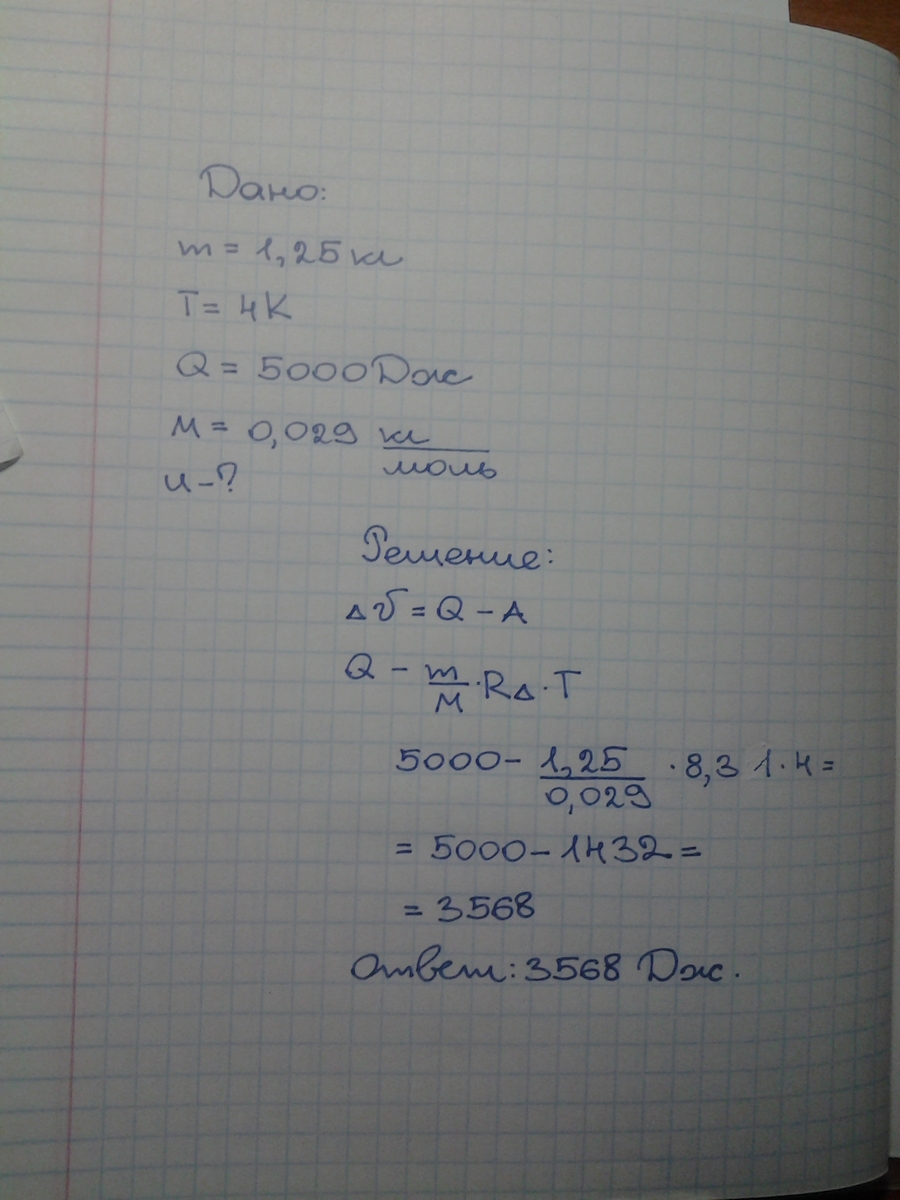 Дано:
m = 1,25 кг
T = 4К
Q = 5000 Дж
M = 0,029 кг/моль
u - ?
Решение:
Δ U = Q - A
Q - m/M · RΔ · T
5000 - 1,25/0,029 · 8,31 · 4 =
= 5000 - 1432 =
= 3568
Ответ: 3568 Дж.